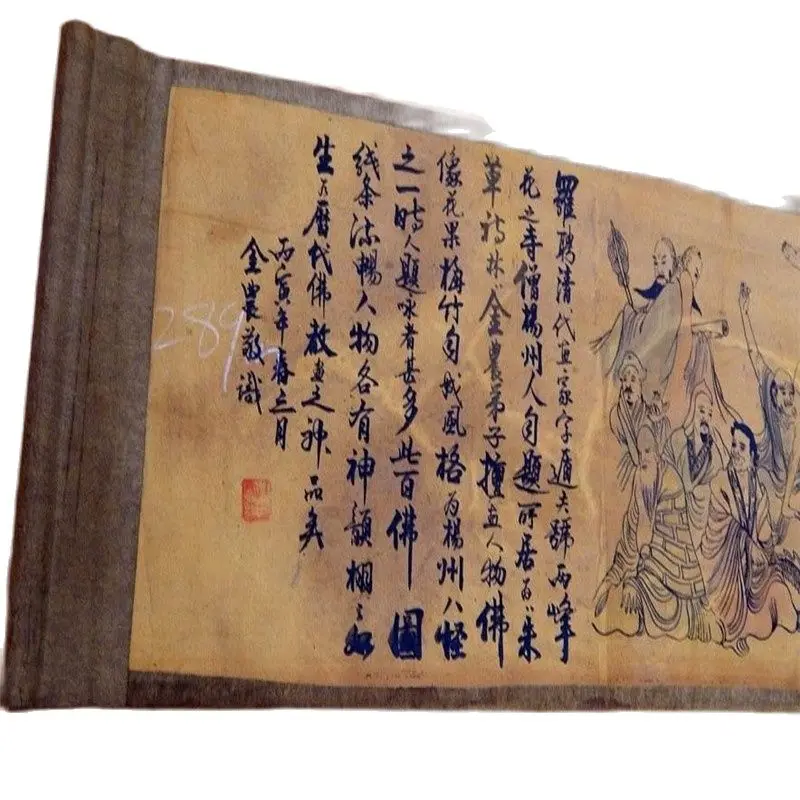 羅聘清代画家字遁夫號兩峰
花之寺僧楊州人自題所居曰朱
草詩林金農弟子擅画人物佛
像花果梅竹自成風格为楊州八怪
之一時人題咏者甚多此百佛圖
线条流暢人物各有神韻栩々如
生乃歷代佛教画之神品矣
丙寅年春三月
金農敬識
289